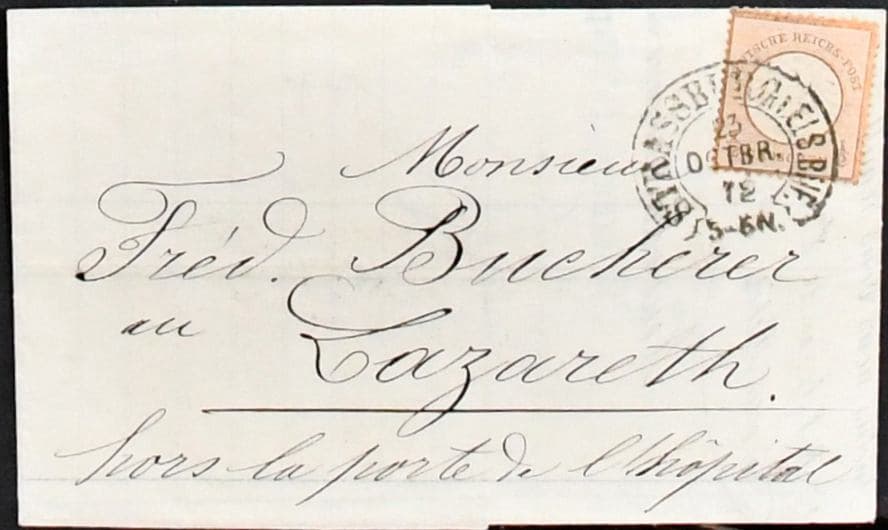 DEUTSCHE REICHS-POST
STRASSBURG i/ELS BHF.
23
OCTBR.
72
5-6N.
Monsieur
Fréd. Bucherer
au
Lazareth.
hors la porte de l'hôpital